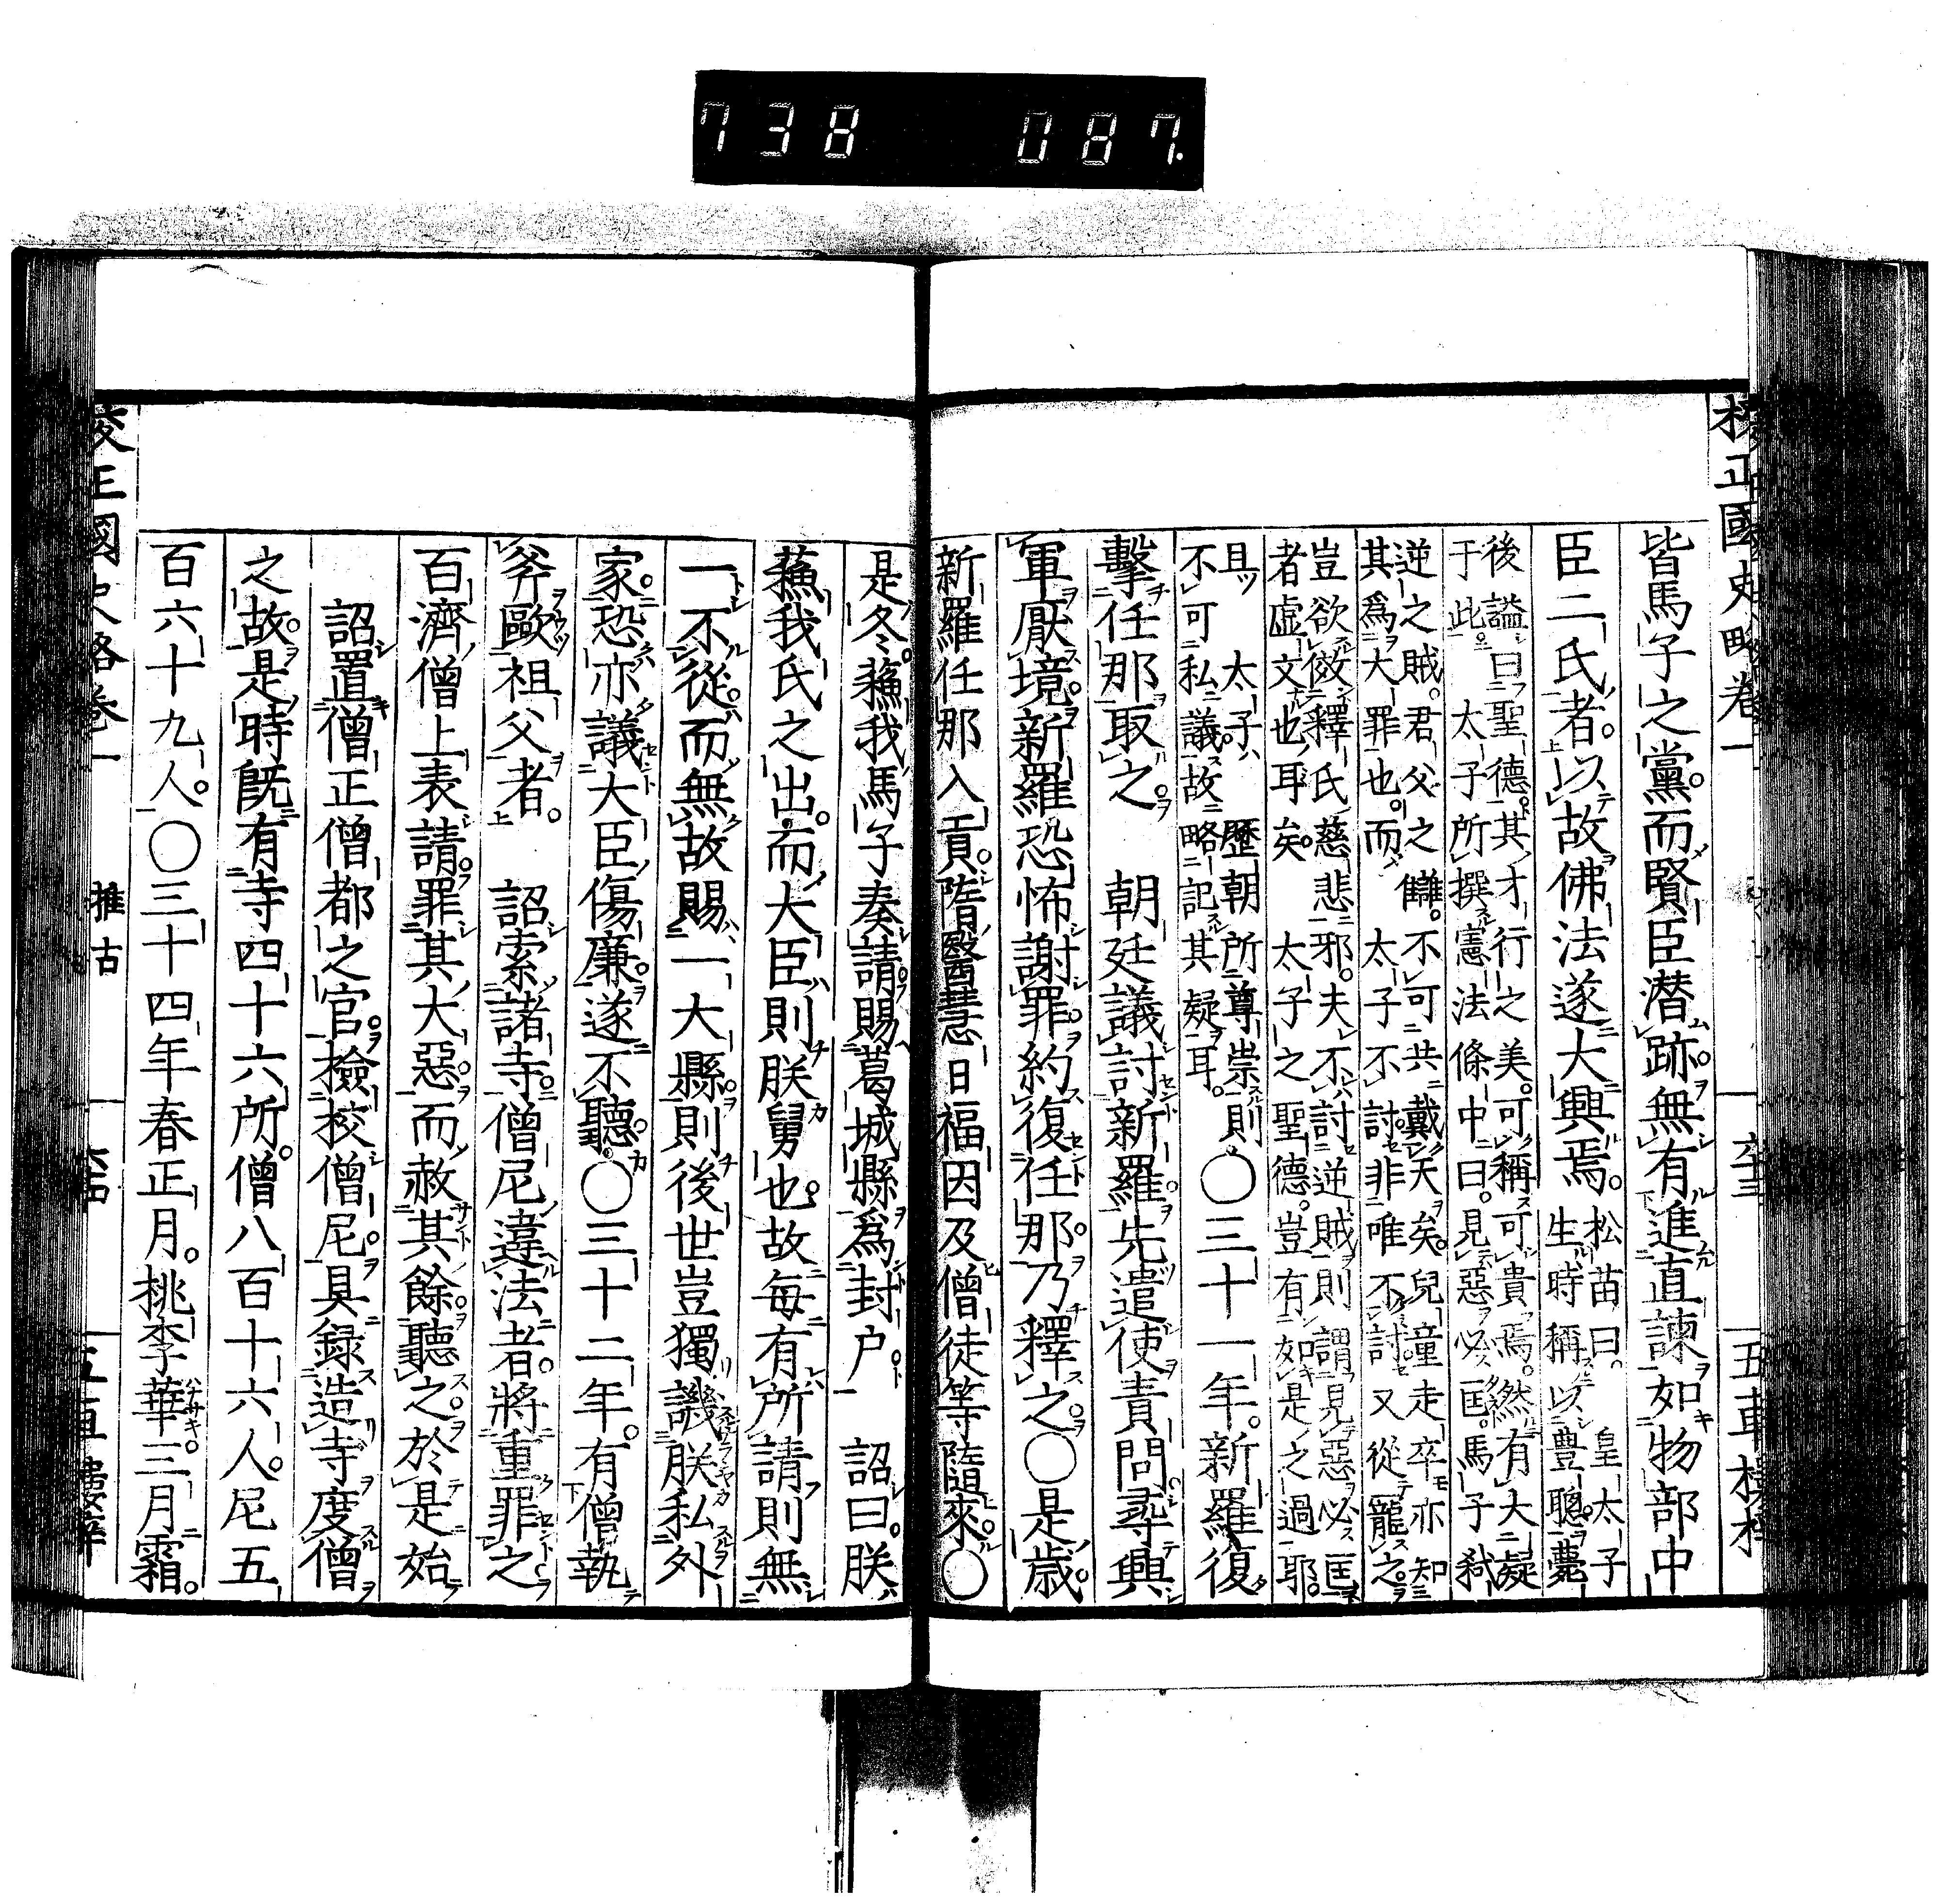 738 087.
校正國史略卷一
五車樓
皆馬子之黨而賢臣潜跡無有進直諫如物部中
臣二氏者以故佛法遂大興焉。松苗曰。皇太子
生時稱以豊聰薨
後謚曰聖德其才行之美。可稱可貴焉。然有大疑
于此太子所撰憲法條中曰。見惡必匡。馬子弑
逆之賊。君父之讎。不可共戴天矣。兒童走卒亦知
其爲大罪也。而太子不討非唯不討又從寵之
豈欲傚釋氏慈悲邪。夫不討逆賊則謂見惡必匡
者虚文也耳矣太子之聖德。豈有如是之過耶。
且太子歷朝所尊崇則
不可私議故略記其疑耳。
○三十一年。新羅復
擊任那取之朝廷議討新羅先遣使責問尋興
軍厭境新羅恐怖謝罪約復任那乃釋之○是歳
新羅任那入貢隋醫慧日福因及僧徒等隨來○
是冬蘓我馬子奏請賜葛城縣爲封户詔曰。朕
蘓我氏之出。而大臣則朕舅也故每有所請則無
一不從而無故賜一大縣則後世豈獨譏朕私外
家恐亦議大臣傷廉遂不聽○三十二年。有僧執
斧歐祖父者。詔索諸寺僧尼違法者。將重罪之
百濟僧上表請罪其大惡而赦其餘聽之於是始
詔置僧正僧都之官檢校僧尼具録造寺度僧
之故。是時既有寺四十六所。僧八百十六人。尼五
百六十九人。○三十四年春正月。桃李華三月霜。
校正國史略卷一
推古